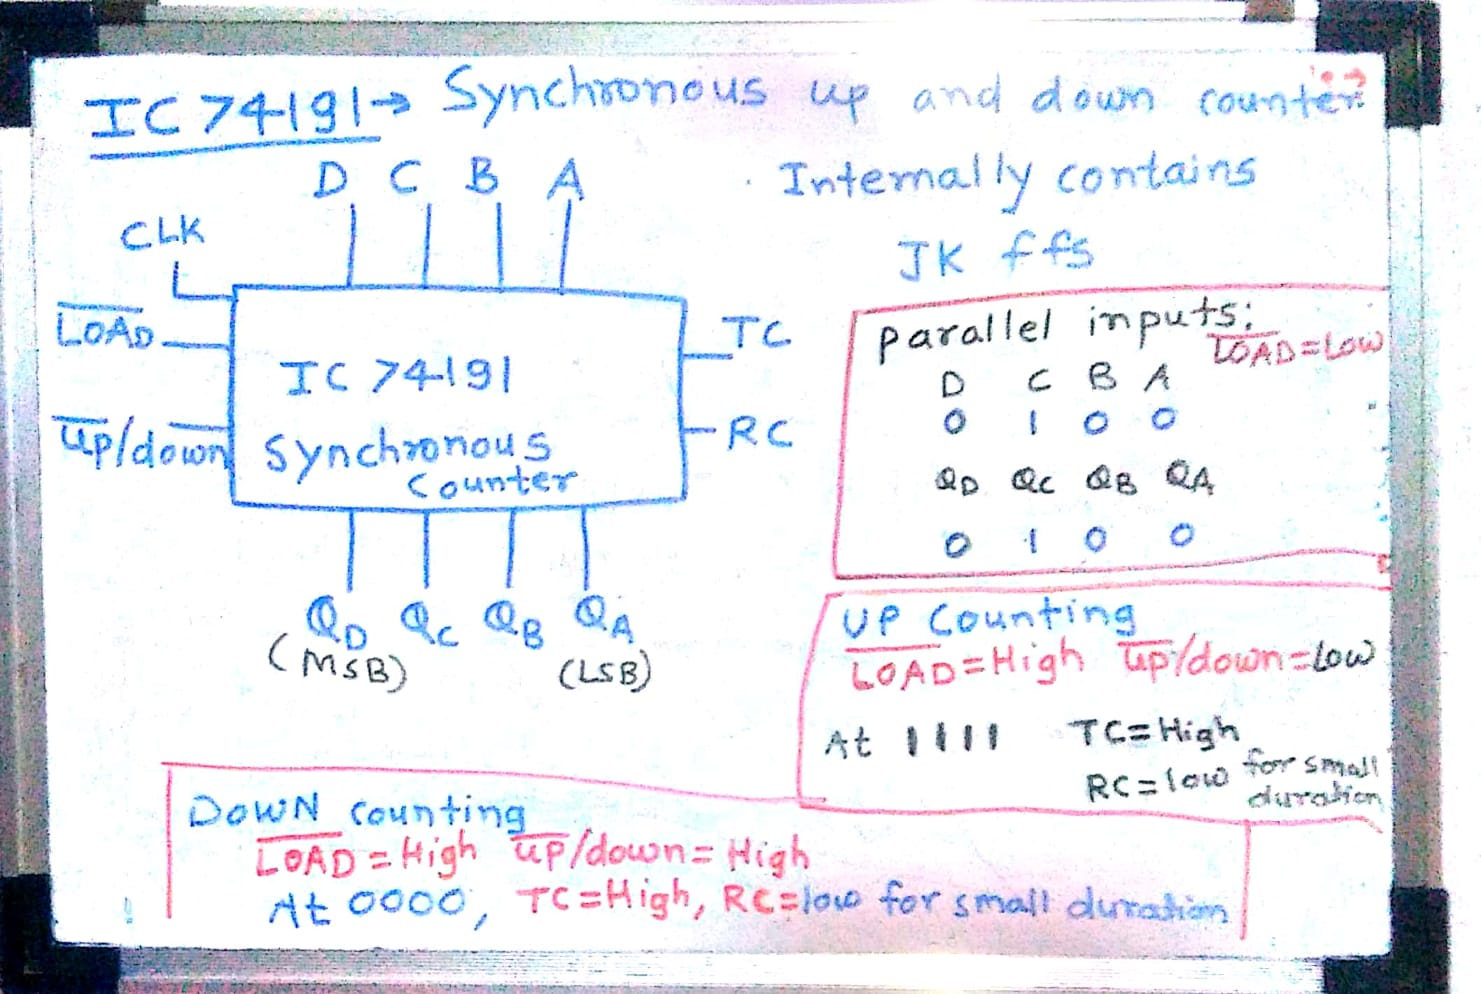 IC 74191→ Synchronous up and down counter
D C B A
Internally contains
JK ffs
CLK
LOAD
up/down
IC 74191
Synchronous
Counter
TC
RC
QD QC QB QA
(MSB) (LSB)
parallel inputs:
LOAD=Low
D C B A
0 1 0 0
QD QC QB QA
0 1 0 0
UP Counting
LOAD=High up/down=Low
At 1111 TC=High
RC=low for small
duration
DOWN counting
LOAD=High up/down=High
At 0000, TC=High, RC=low for small duration